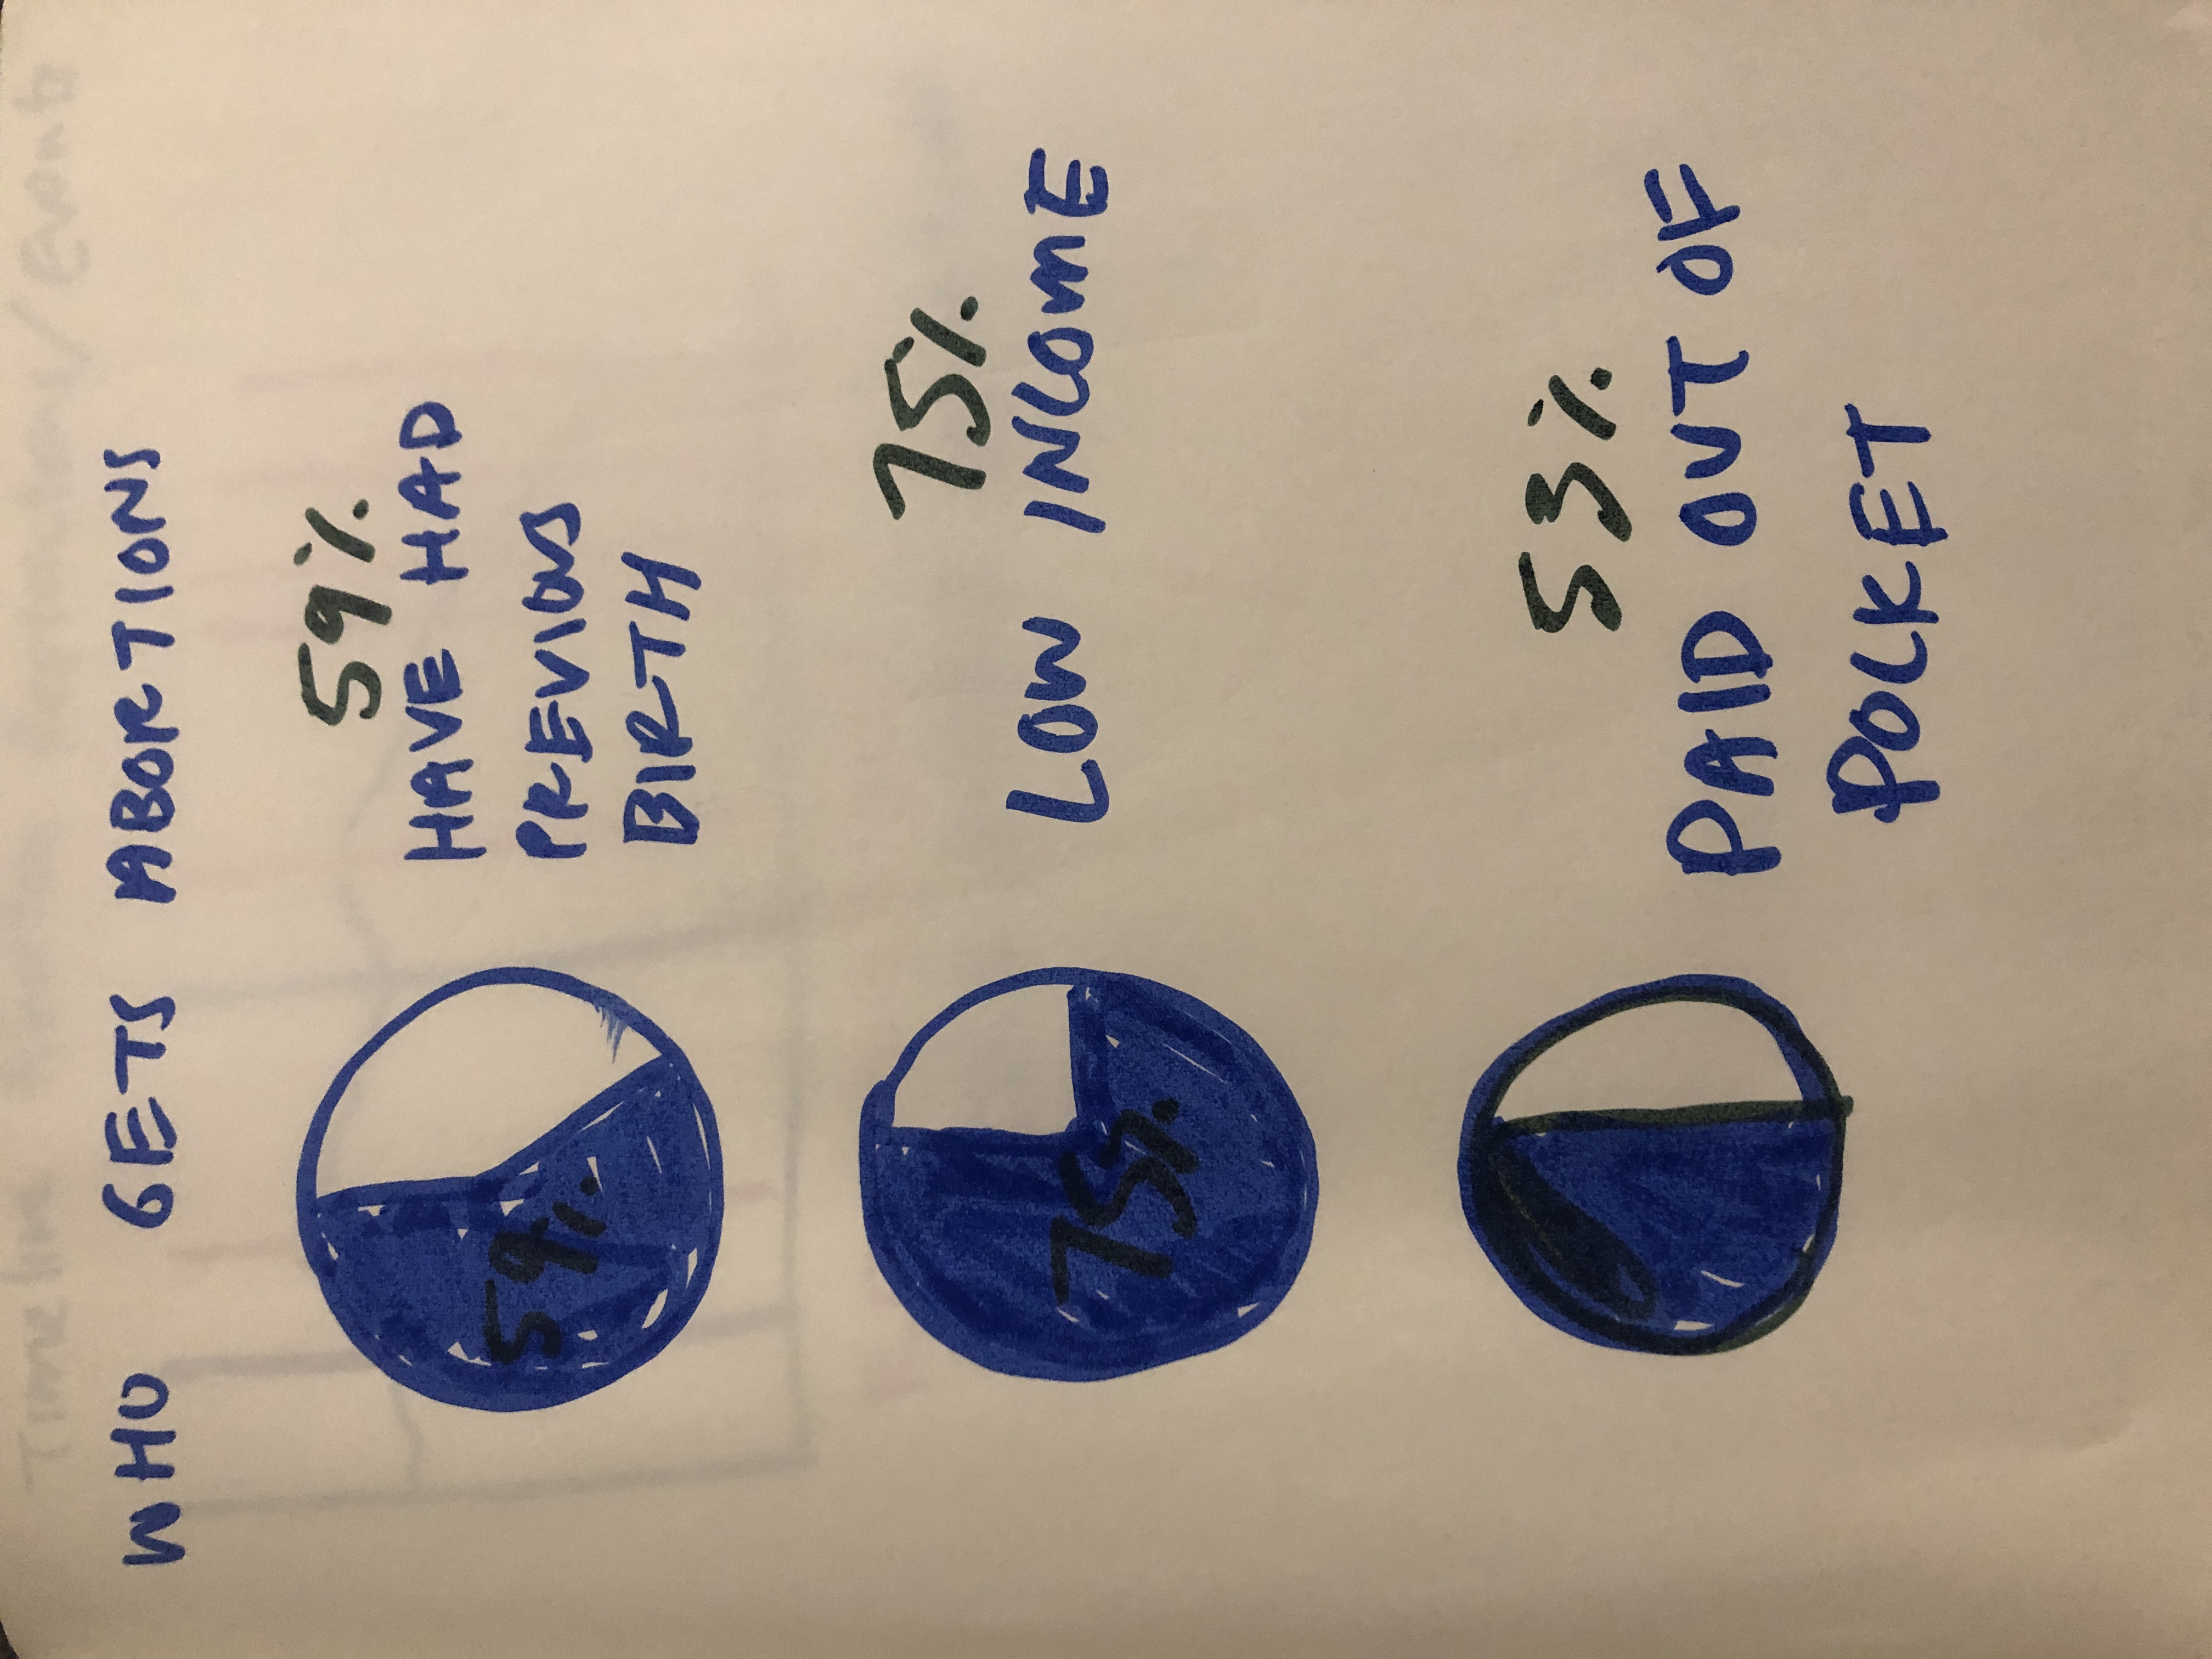 Timeline / Events
WHO GETS ABORTIONS
59%
HAVE HAD
PREVIOUS
BIRTH
59%
75%
LOW INCOME
75%
53%
PAID OUT OF
POCKET